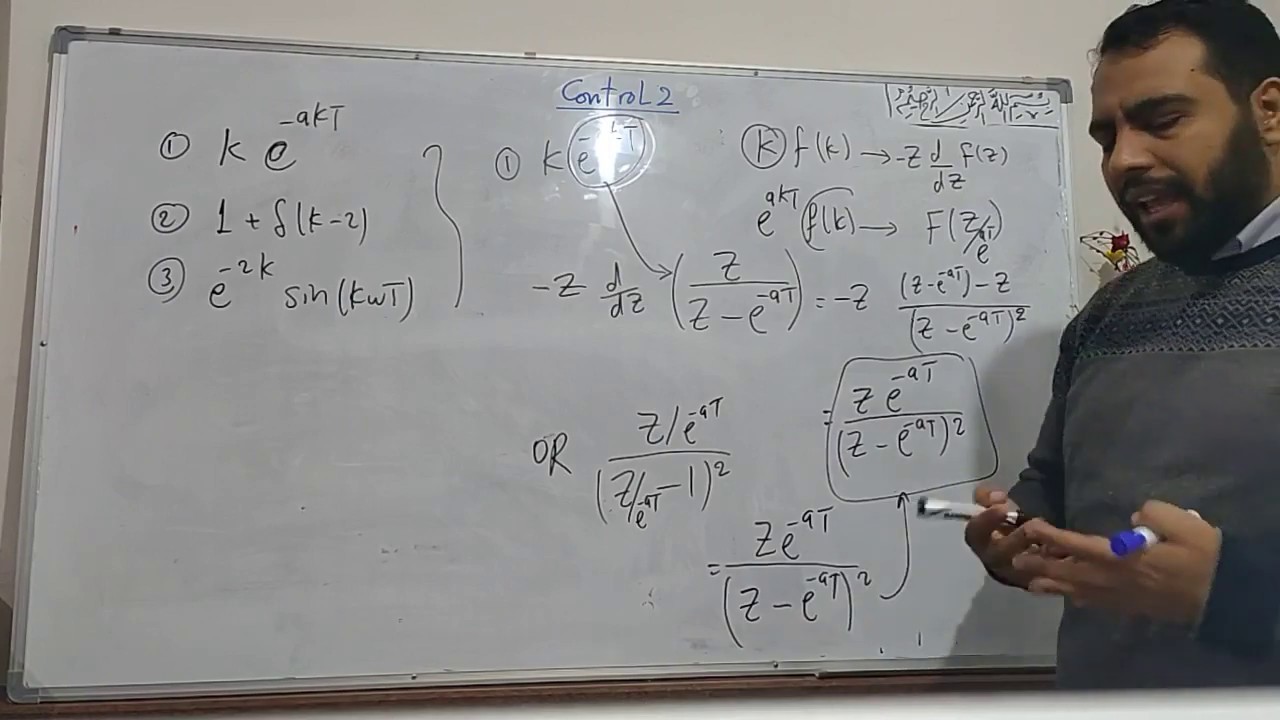 Control 2
① k e^{-akT}
② 1 + δ(k-2)
③ e^{-2k} sin(kωT)
① k e
k f(k) → -z d/dz F(z)
e^{akT} f(k) → F(z/e^{aT})
-z d/dz (z/(z - e^{-aT})) = -z ((z - e^{-aT}) - z)/(z - e^{-aT})^2
= z e^{-aT}/(z - e^{-aT})^2
OR (z/e^{-aT})/(z/e^{-aT} - 1)^2
= z e^{-aT}/(z - e^{-aT})^2